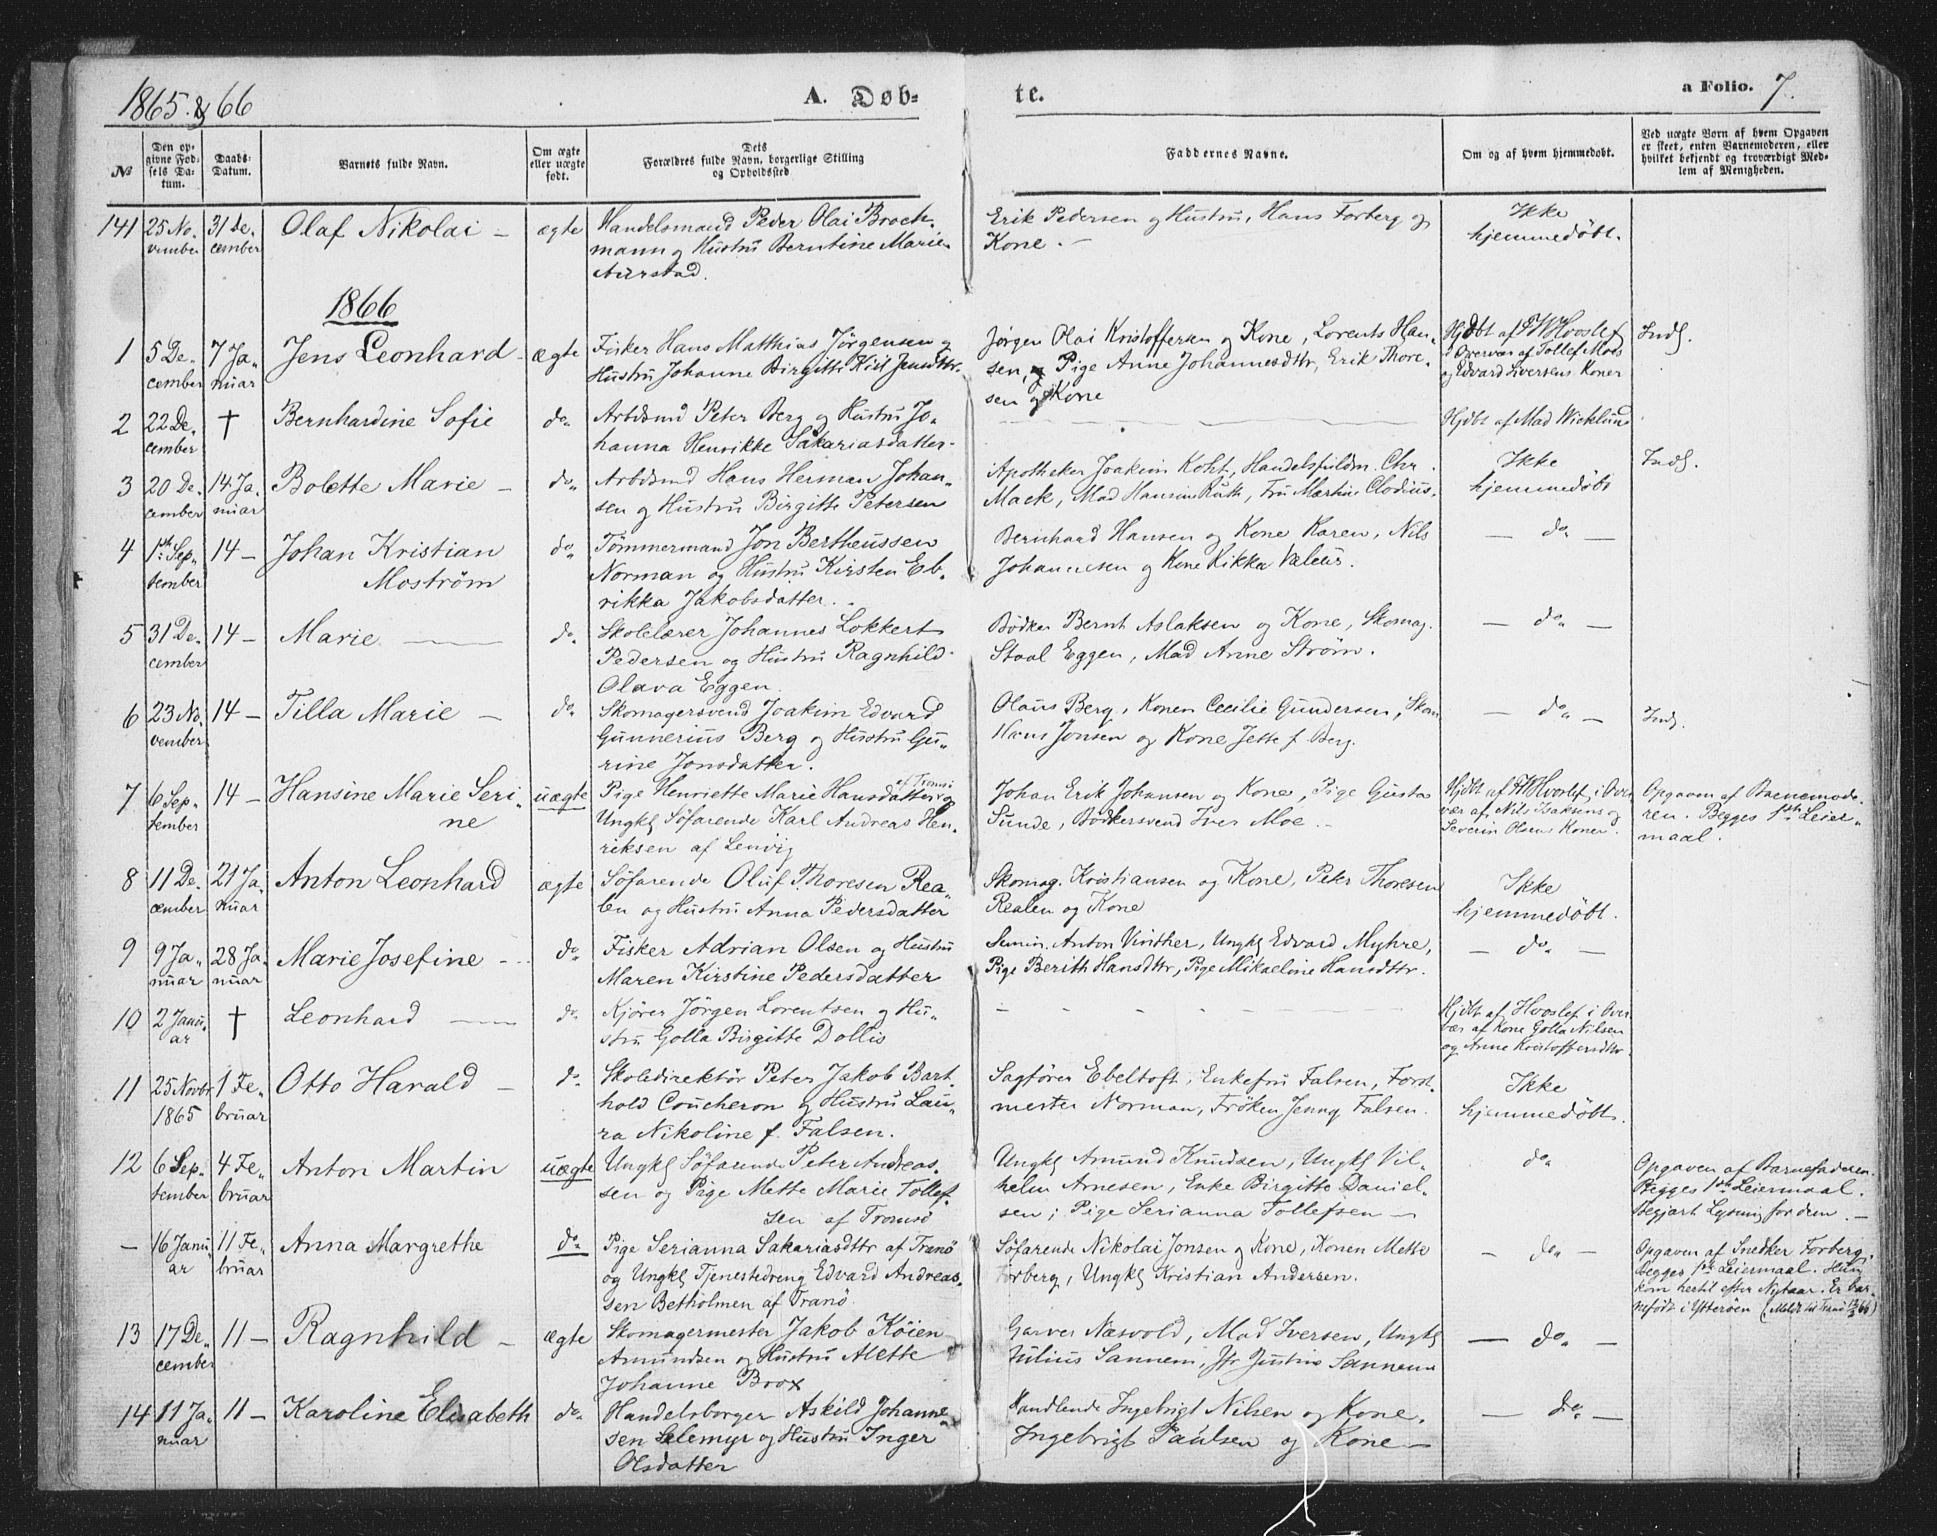 1865 & 66
A. Døb- te.
a Folio. 7.
№
Den op-
givne Fød-
sels Da-
tum.
Daabs-
Datum.
Barnets fulde Navn.
Om ægte
eller uægte
født.
Dets
Forældres fulde Navn, borgerlige Stilling
og Opholdssted
Faddernes Navne.
Om og af hvem hjemmedøbt.
Ved uægte Børn af hvem Opgaven
er skeet, enten Barnemoderen, eller
hvilket bekjendt og troværdigt Med-
lem af Menigheden.
141
25 No-
vember
31 De-
cember
Olaf Nikolai –
ægte
Handelsmand Peder Olai Brock-
mann og Hustru Berntine Marie
Aurstad.
Erik Pedersen og Hustru, Hans Forberg og
Kone. –
Ikke
hjemmedøbt.
1866
1
5 De-
cember
7 Ja-
nuar
Jens Leonhard –
ægte
Fisker Hans Matthias Jørgensen og
Hustru Johanne Birgitte
Jørgen Olai Kristoffersen og Kone, Lorents Han-
sen, Pige Anne Johannesdttr, Erik Thore-
sen og Kone
Hjdbt af Hvoslef
i Overvær af Tollef Moes
og Edvard Iversens Koner
Inds.
2
22 De-
cember
†
Bernhardine Sofie
do.
Arbdsmd Peter Berg og Hustru Jo-
hanna Henrikke Sakariasdatter
Hjdbt af Mad Wicklund
3
20 De-
cember
14 Ja-
nuar
Bolette Marie –
do.
Arbdsmd Hans Herman Johan-
sen og Hustru Birgitte Petersen
Apotheker Joakim Koht, Handelsfuldm. Chr.
Mack, Mad Hansine Ruth, Fru Martine Clodius.
Ikke
hjemmedøbt
Inds.
4
1ste Sep-
tember
14 –
Johan Kristian
Moström
do.
Tømmermand Jon Bertheussen
Norman og Hustru Kirsten Eb-
rikka Jakobsdatter.
Bernhard Hansen og Kone Karen, Nils
Johannesen og Kone Rikka Valeur.
– do. –
5
31 De-
cember
14 –
Marie –
do.
Skolelærer Johannes Lokkert
Pedersen og Hustru Ragnhild
Olava Eggen.
Bødker Bernt Aslaksen og Kone, Skomag.
Staal Eggen, Mad Anne Strøm.
– do. –
6
23 No-
vember
14 –
Tilla Marie –
do.
Skomagersvend Joakim Edvard
Gunnerius Berg og Hustru Gu-
rine Jonsdatter.
Olaus Berg, Konen Cecilie Gundersen, Skom
Hans Jonsen og Kone Jette f. Berg.
– do. –
Inds.
7
6 Sep-
tember
14 –
Hansine Marie Seri-
ne
uægte
Pige Henriette Marie Hansdatter af Tromsø og
Ungkl Søfarende Karl Andreas Hen-
riksen af Lenvig
Johan Erik Johansen og Kone, Pige Gusta
Sunde, Bødkersvend Iver Moe –
Hjdbt af Hvoslef i Over-
vær af Nils Isaksens og
Severin Olsens Koner.
Opgaven af Barnemode-
ren. Begges 1ste Leier-
maal.
8
11 De-
cember
21 Ja-
nuar
Anton Leonhard
ægte
Søfarende Oluf Thoresen Rea-
len og Hustru Anna Pedersdatter
Skomag. Kristiansen og Kone, Peter Thoresen
Realen og Kone
Ikke
hjemmedøbt.
9
9 Ja-
nuar
28 Ja-
nuar
Marie Josefine –
do.
Fisker Adrian Olsen og Hustru
Maren Kirstine Pedersdatter
Semin. Anton Vinther, Ungkl Edvard Myhre,
Pige Berith Hansdttr, Pige Mikaeline Hansdttr.
– do. –
10
2 Janu-
ar
†
Leonhard –
do.
Kjører Jørgen Lorentsen og Hu-
stru Golla Birgitte Dollis
Hjdbt af Hvoslef i Over-
vær af Kone Golla Nilsen
og Anne Kristoffersdttr.
11
25 Novbr
1865
1 Fe-
bruar
Otto Harald –
do.
Skoledirektør Peter Jakob Bart-
hold Coucheron og Hustru Lau-
ra Nikoline f. Falsen.
Sagfører Ebeltoft, Enkefru Falsen, Forst-
mester Norman, Frøken Jenny Falsen.
Ikke
hjemmedøbt
12
6 Sep-
tember
4 Fe-
bruar
Anton Martin
uægte
Ungkl Søfarende Peter Andreas-
sen og Pige Mette Marie Tollef-
sen af Tromsø
Ungkl Amund Knudsen, Ungkl Vil-
helm Arnesen, Enke Birgitte Daniel-
sen, Pige Serianna Tollefsen –
do.
Opgaven af Barnefaderen.
Begges 1ste Leiermaal.
Begjært Lysning for dem. –
–
16 Janu-
ar
11 Fe-
bruar
Anna Margrethe
do.
Pige Serianna Sakariasdttr af Tranø
og Ungkl Tjenestedreng Edvard Andreas-
sen Betholmen af Tranø
Søfarende Nikolai Jonsen og Kone, Konen Mette
Forberg, Ungkl Kristian Andersen.
– do. –
Opgaven af Snedker Forberg.
begges 1ste Leiermaal. Hun
kom hertil efter Nytaar. Er bar-
nefødt i Ytterøen (Meldt til Tranø
13
17 De-
cember
11 –
Ragnhild –
ægte
Skomagermester Jakob Køien
Amundsen og Hustru Alette
Johanne Brox
Garver Næsvold, Mad Iversen, Ungkl
Julius Sannem, Jfr Justine Sannem
– do. –
14
11 Ja-
nuar
11 –
Karoline Elisabeth
do.
Handelsborger Askild Johanne-
sen Selemyr og Hustru Inger
Olsdatter
Handlende Ingebrigt Nilsen og Kone,
Ingebrigt Paulsen og Kone –
– do. –